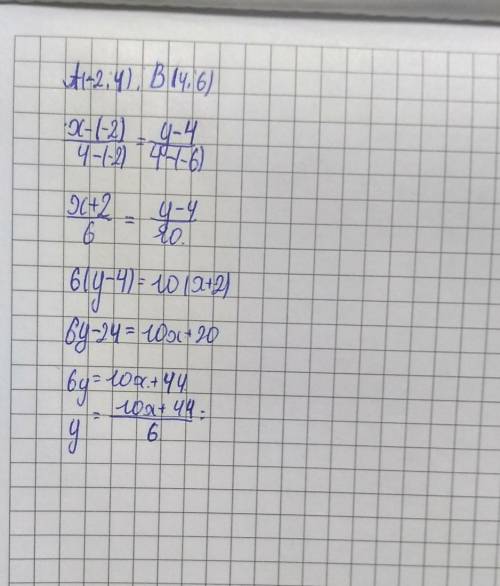 A(-2;4), B(4;6)
x-(-2)/4-(-2) = y-4/4-(-6)
x+2/6 = y-4/10
6(y-4)=10(x+2)
6y-24=10x+20
6y=10x+44
y = 10x+44/6